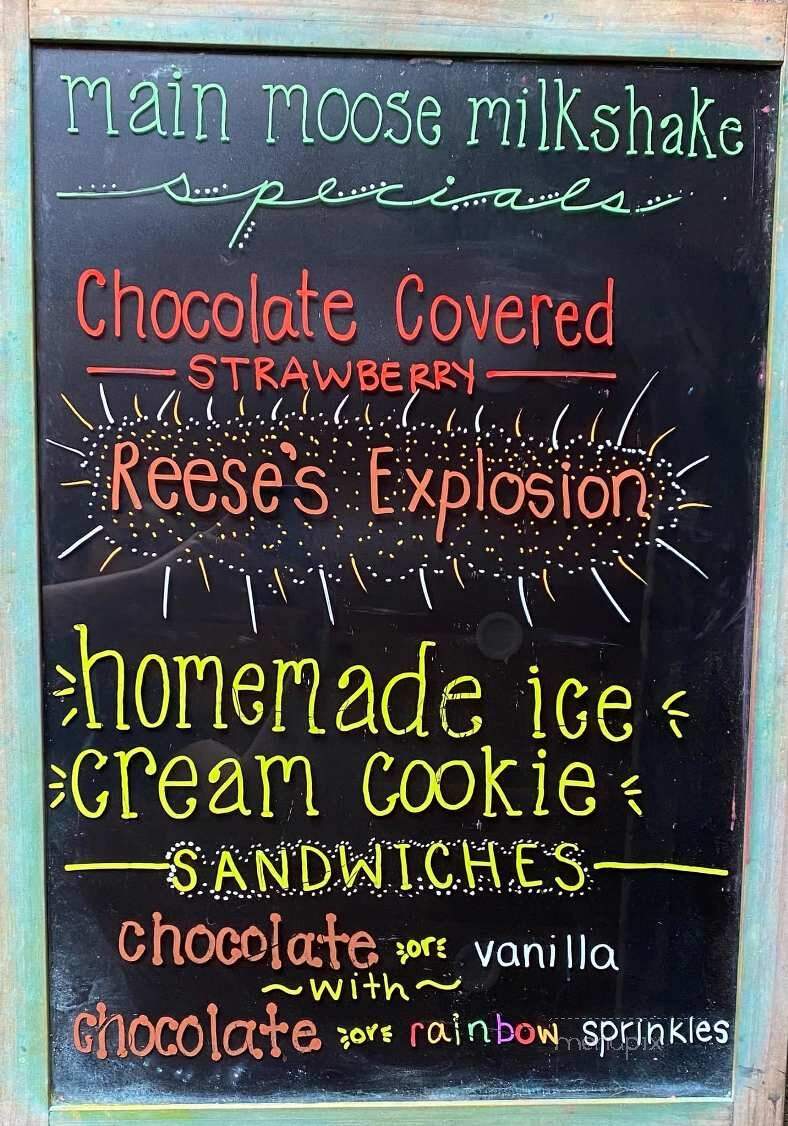 main moose milkshake
specials
Chocolate Covered
STRAWBERRY
Reese's Explosion
homemade ice
cream cookie
SANDWICHES
chocolate or vanilla
~with~
chocolate or rainbow sprinkles
menupix